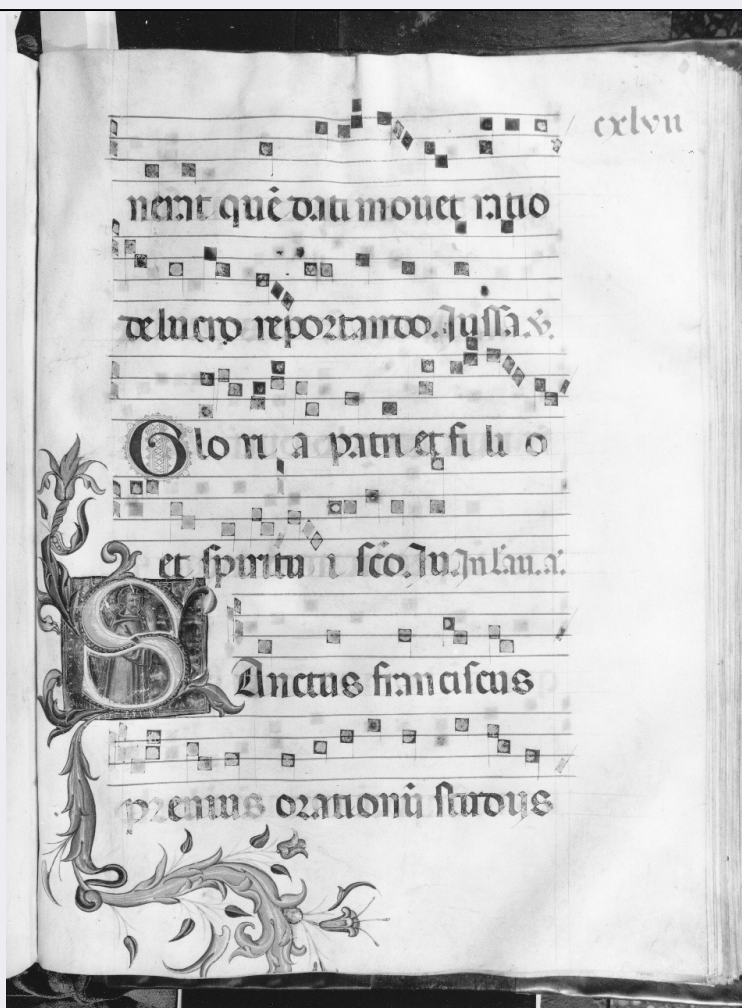 cxlvii
nerat quē dati mouet ratio
de lucro reportando. Jussa. ℣.
Glo ri a patri et fi li o
et spiritu i sc̄o. Ju. Jn lau. a.
SAnctus franciscus
preuius orationū studiis